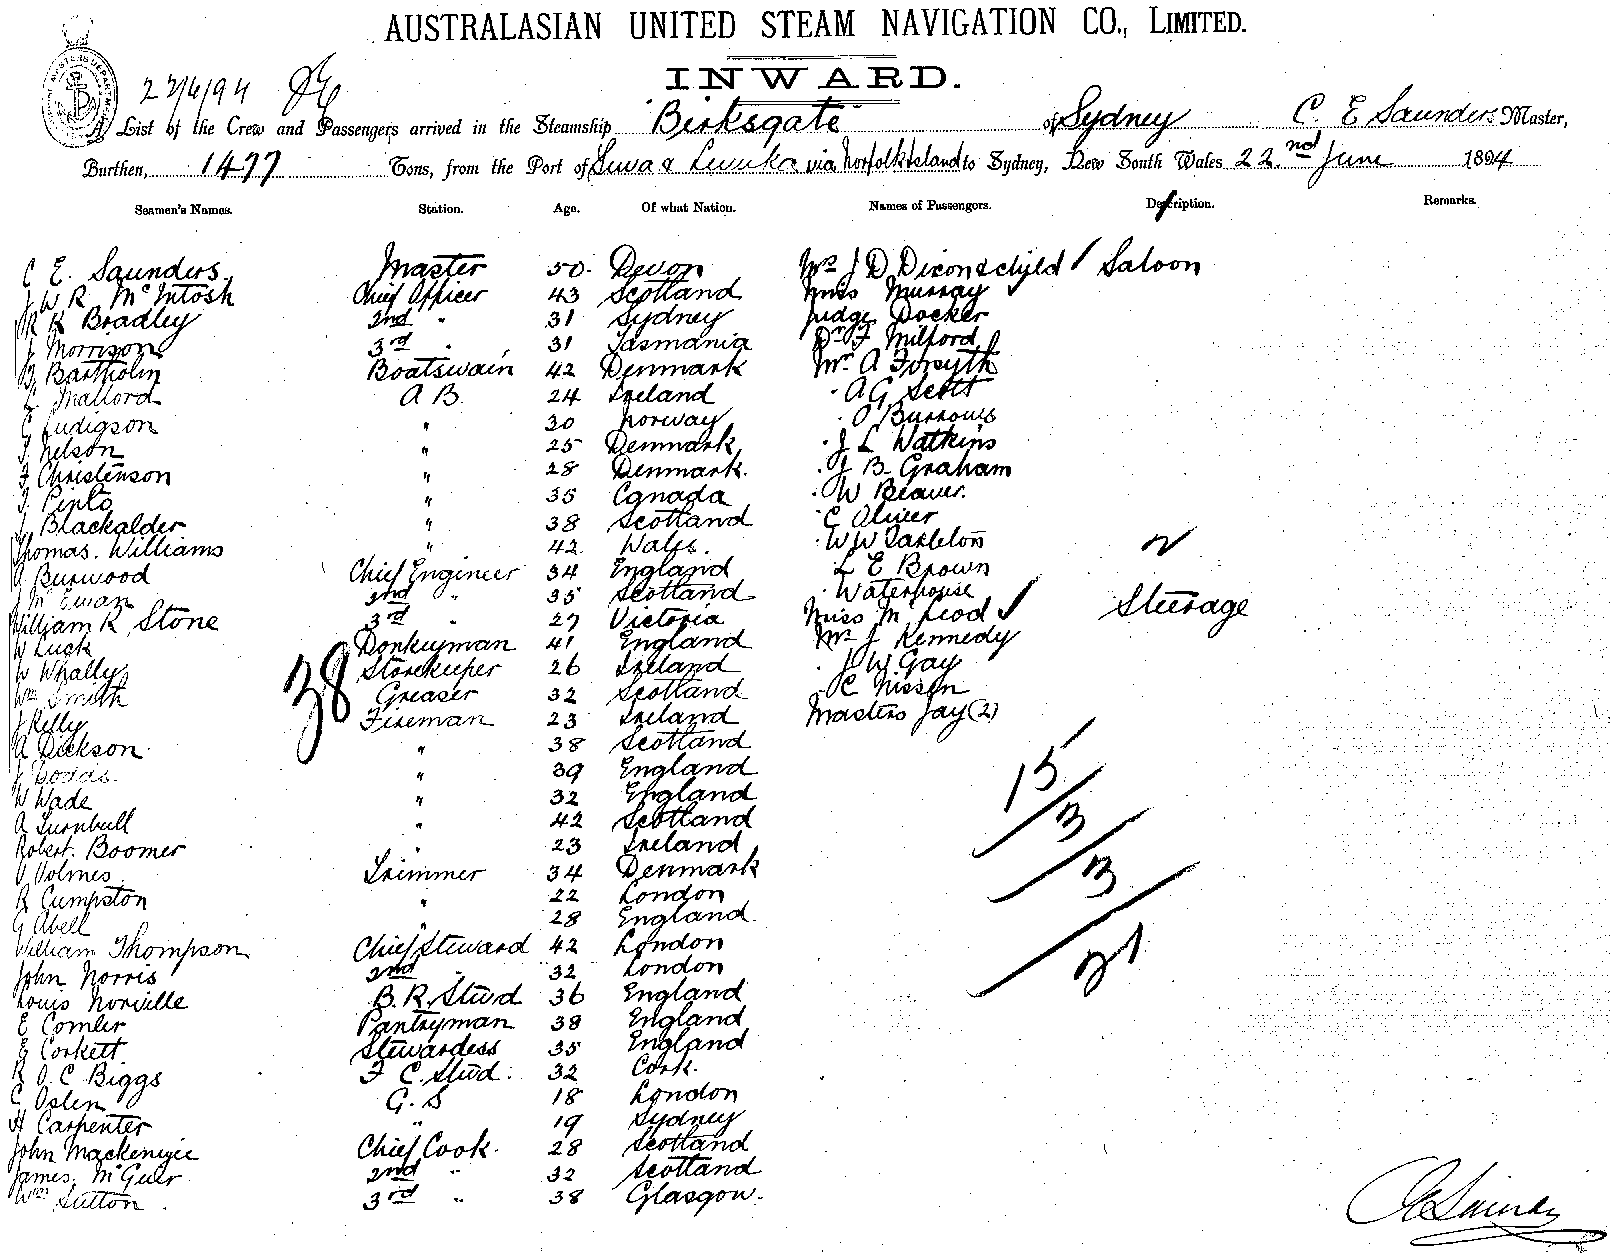 AUSTRALASIAN UNITED STEAM NAVIGATION CO., LIMITED.
INWARD.
22/6/94
A List of the Crew and Passengers arrived in the Steamship "Birksgate" of Sydney C. E Saunders Master,
Burthen, 1477 Tons, from the Port of Suva & Levuka via Norfolk Island to Sydney, New South Wales 22nd June 1894
Seamen's Names. Station. Age. Of what Nation. Names of Passengers. Description. Remarks.
C E. Saunders Master 50. Devon Mrs J D Dixon & child Saloon
J W R McIntosh Chief Officer 43 Scotland Miss Murray
R K Bradley 2nd " 31 Sydney Judge Docker
J Morrison 3rd " 31 Tasmania Dr F Milford
B Bartholin Boatswain 42 Denmark Mr A Forsyth
Mallord A B 24 Ireland " A G Scott
C Ludigson " 30 Norway " O Burrows
T Nelson " 25 Denmark " J L Watkins
F Christenson " 28 Denmark. " J B Graham
T. Pinto " 35 Canada " W Beaver.
J Blackalder " 38 Scotland " C Oliver
Thomas. Williams " 42 Wales. " W W Tarleton
A Burwood Chief Engineer 34 England L E Brown
J McEwan 2nd " 35 Scotland " Waterhouse
William R Stone 3rd " 27 Victoria Miss McLeod Steerage
W Luck Donkeyman 41 England Mr J Kennedy
W Whally Storekeeper 26 Ireland " J W Gay
Wm Smith Greaser 32 Scotland " C Nissen
J Kelly Fireman 23 Ireland Masters Jay (2)
38
A Dickson " 38 Scotland
J Dodds " 39 England
W Wade " 32 England
A Turnbull " 42 Scotland
Robert. Boomer " 23 Ireland
V Volmes Trimmer 34 Denmark
R Cumpston " 22 London
G Abell " 28 England
15/3/3/21
William Thompson Chief Steward 42 London
John Norris 2nd " 32 London
Louis Norville B. R. Stwd 36 England
E Comler Pantryman 38 England
E Corkett Stewardess 35 England
R O. C Biggs F C. Stwd. 32 Cork.
C Oslen G. S 18 London
H Carpenter " 19 Sydney
John Mackenzie Chief Cook. 28 Scotland
James. McGuer 2nd " 32 Scotland
Wm Sutton. 3rd " 38 Glasgow.